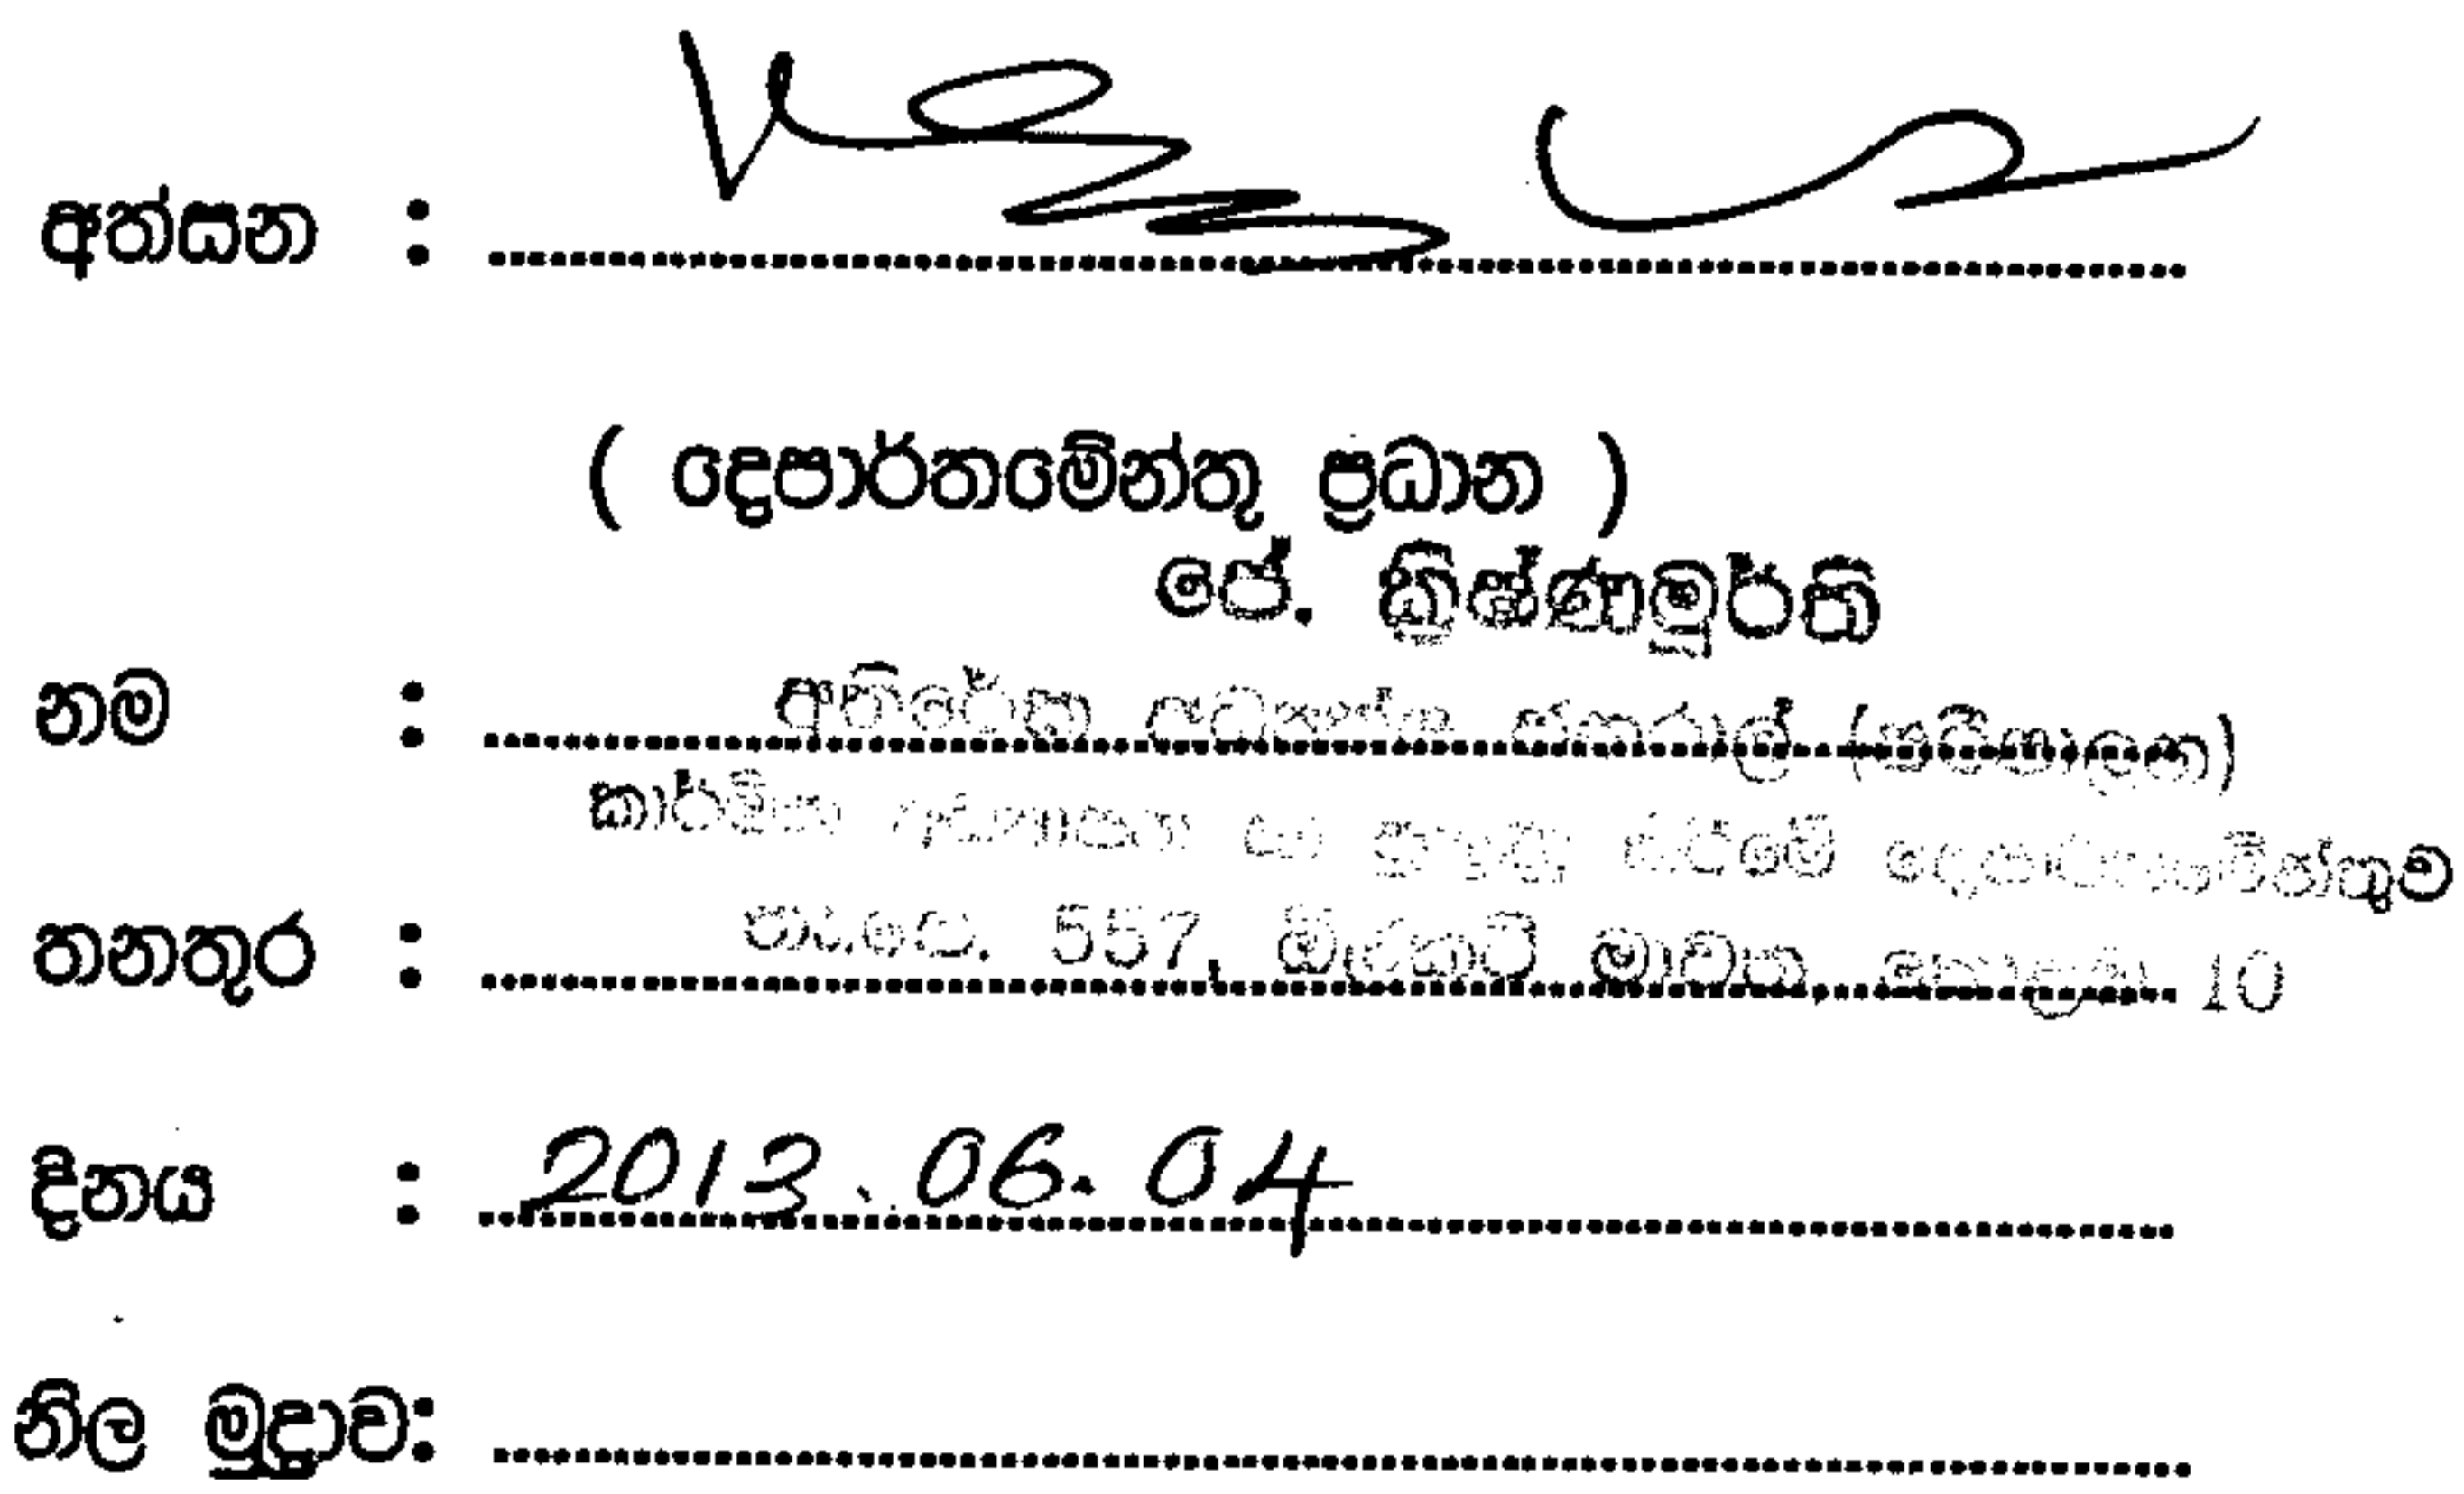 අත්සන :
( දෙපාර්තමේන්තු ප්‍රධාන )
ජේ. ක්‍රිෂ්ණමූර්ති
නම : අතිරේක අධ්‍යක්ෂ ජනරාල් (පරිපාලන)
කාර්මික අධ්‍යාපන හා පුහුණු කිරීමේ දෙපාර්තමේන්තුව
තනතුර : තැ.පෙ. 557, ඕල්කට් මාවත, කොළඹ 10
දිනය : 2013.06.04
නිල මුද්‍රාව: